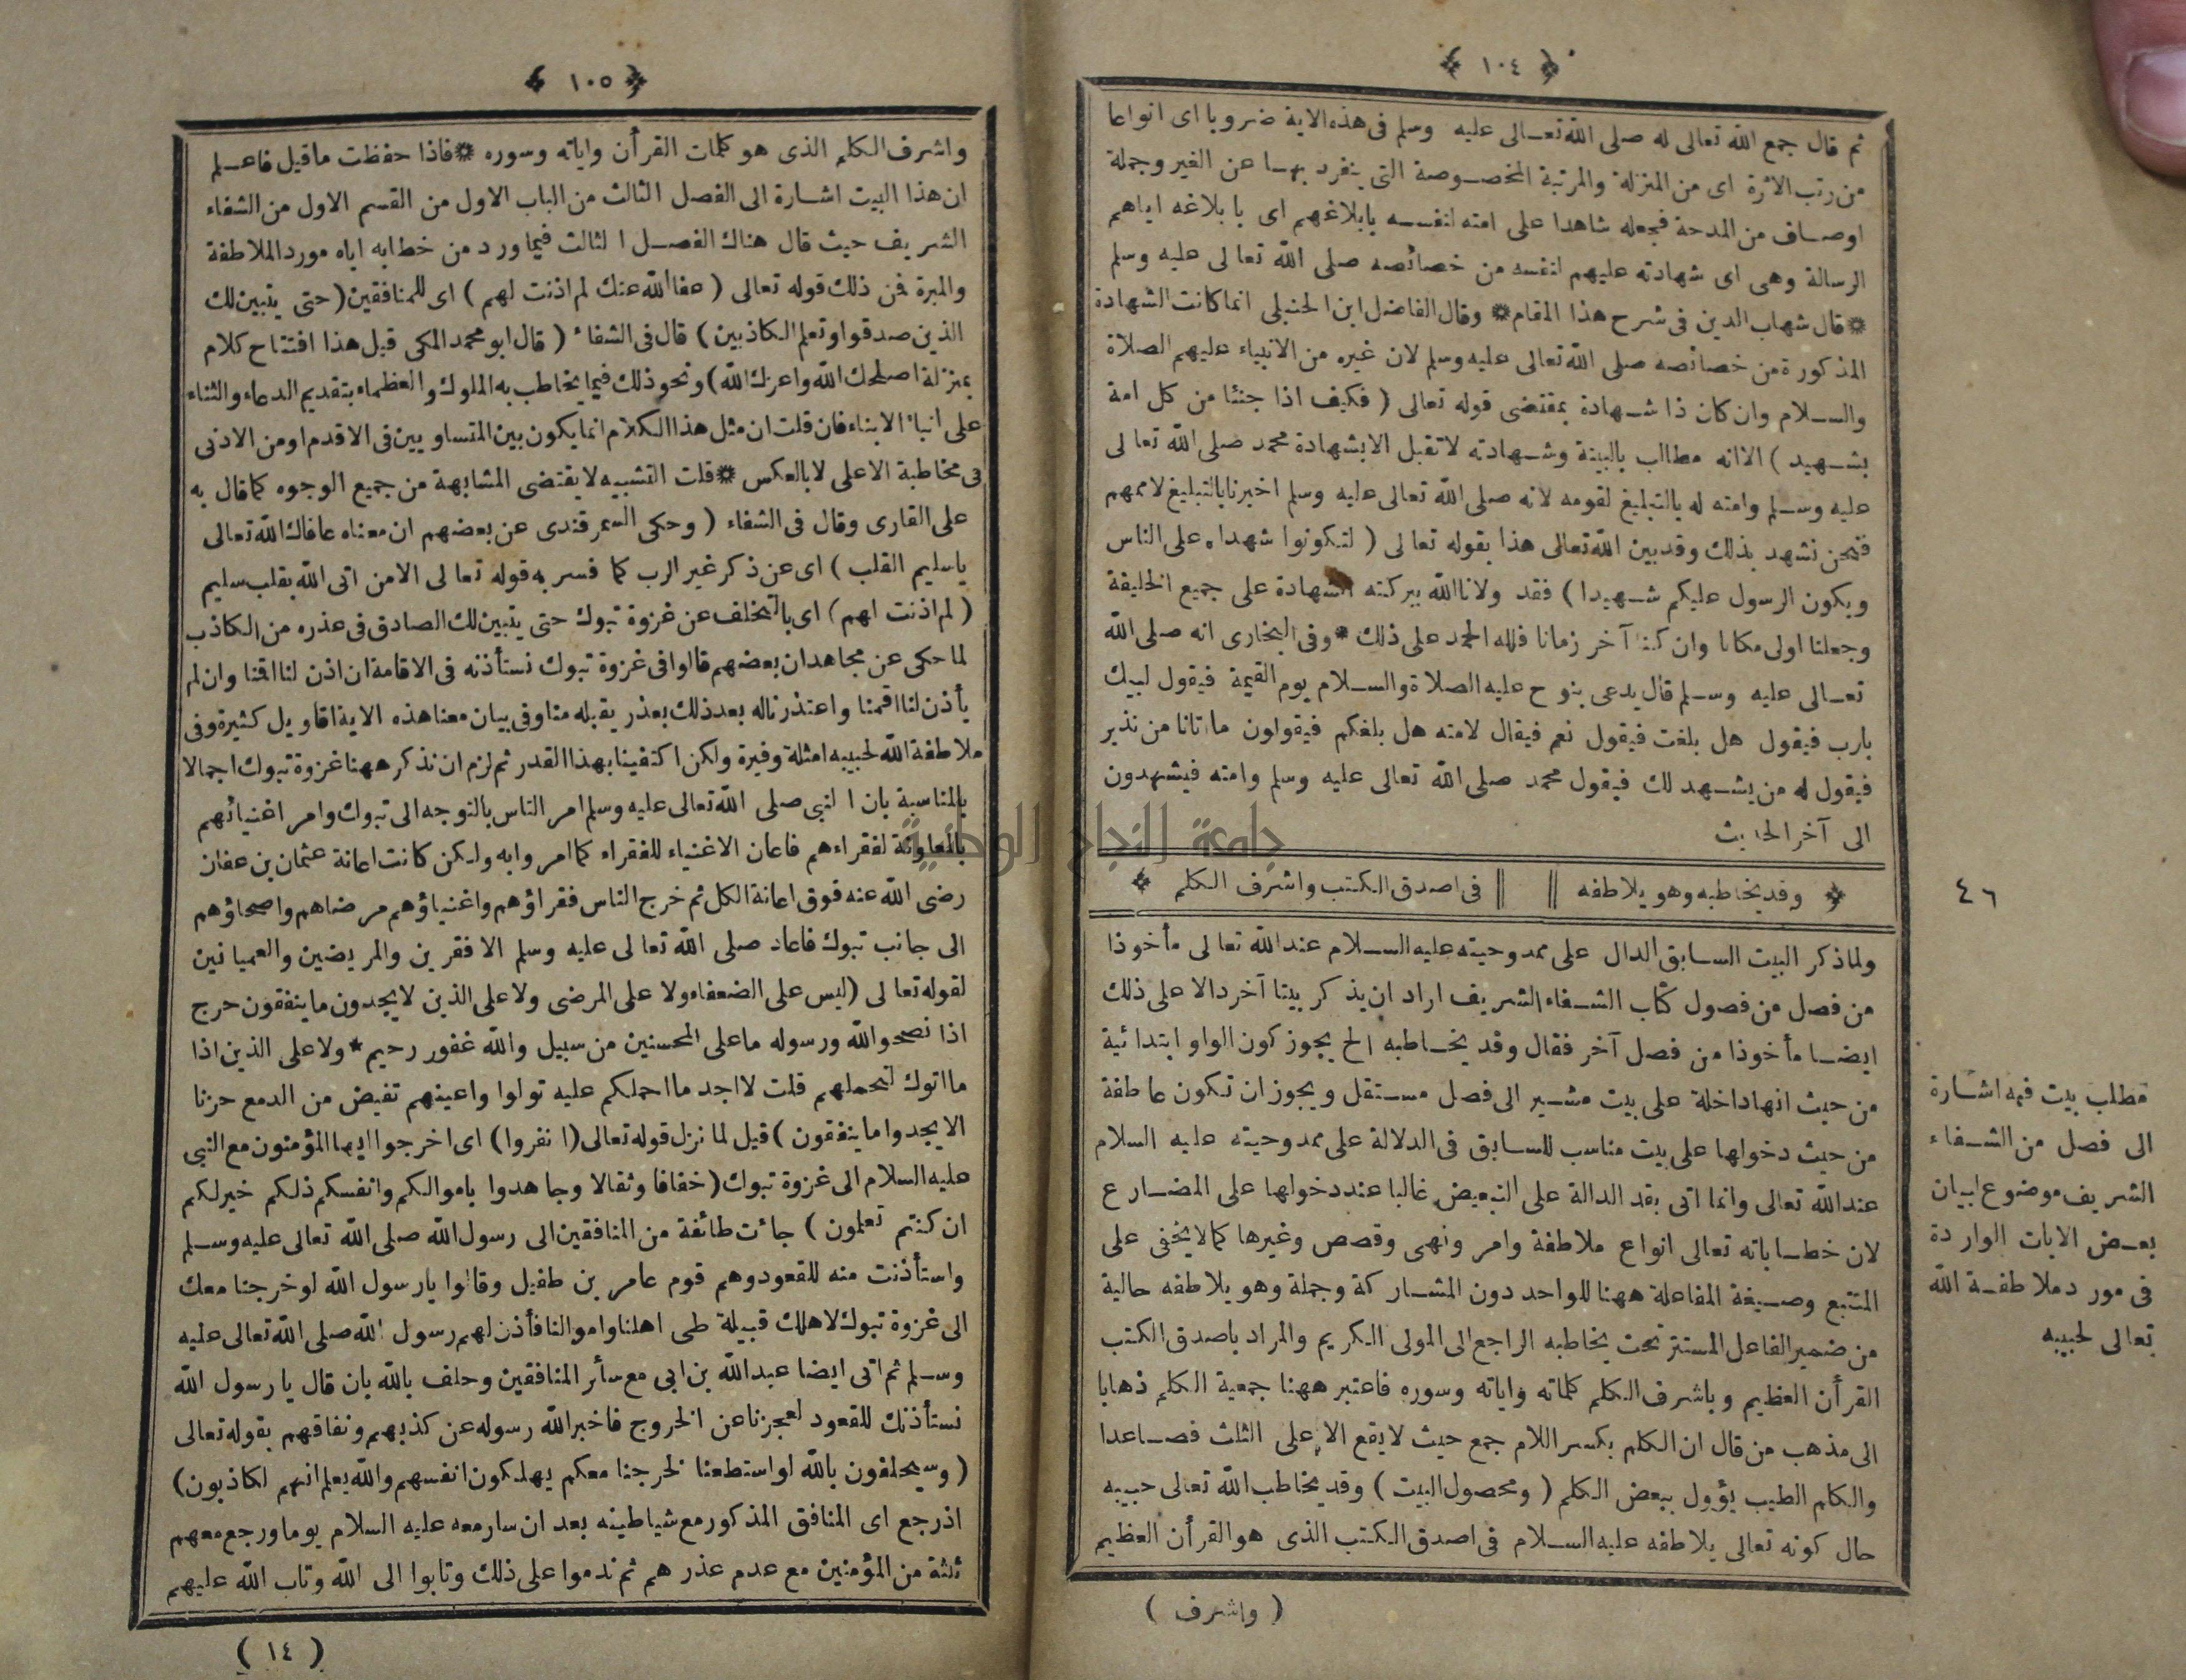 ﴿ ١٠٤ ﴾
ثم قال جمع الله تعالى له صلى الله تعالى عليه وسلم فى هذه الاية ضروبا اى انواعا
من رتب الاثرة اى من المنزلة والمرتبة المخصوصة التى ينفرد بها عن الغير وجملة
اوصاف من المدحة فجعله شاهدا على امته لنفسه بابلاغهم اى بابلاغه اياهم
الرسالة وهى اى شهادته عليهم لنفسه من خصائصه صلى الله تعالى عليه وسلم
* قال شهاب الدين فى شرح هذا المقام * وقال الفاضل ابن الحنبلى انما كانت الشهادة
المذكورة من خصائصه صلى الله تعالى عليه وسلم لان غيره من الانبياء عليهم الصلاة
والسلام وان كان ذا شهادة بمقتضى قوله تعالى ( فكيف اذا جئنا من كل امة
بشهيد ) الا انه مطالب بالبينة وشهادته لا تقبل الا بشهادة محمد صلى الله تعالى
عليه وسلم وامته له بالتبليغ لقومه لانه صلى الله تعالى عليه وسلم اخبرنا بالتبليغ لاممهم
فنحن نشهد بذلك وقد بين الله تعالى هذا بقوله تعالى ( لتكونوا شهداء على الناس
ويكون الرسول عليكم شهيدا ) فقد ولانا الله ببركته الشهادة على جميع الخليقة
وجعلنا اولى مكانا وان كنا آخر زمانا فلله الحمد على ذلك * وفى البخارى انه صلى الله
تعالى عليه وسلم قال يدعى بنوح عليه الصلاة والسلام يوم القيمة فيقول لبيك
يارب فيقول هل بلغت فيقول نعم فيقال لامته هل بلغكم فيقولون ما تانا من نذير
فيقول له من يشهد لك فيقول محمد صلى الله تعالى عليه وسلم وامته فيشهدون
الى آخر الحديث
﴿ وقد يخاطبه وهو يلاطفه || || فى اصدق الكتب واشرف الكلم ﴾
٤٦
ولما ذكر البيت السابق الدال على ممدوحيته عليه السلام عند الله تعالى مأخوذا
من فصل من فصول كتاب الشفاء الشريف اراد ان يذكر بيتا آخر دالا على ذلك
ايضا مأخوذا من فصل آخر فقال وقد يخاطبه الخ يجوز كون الواو ابتدائية
من حيث انها داخلة على بيت مشير الى فصل مستقل ويجوز ان تكون عاطفة
من حيث دخولها على بيت مناسب للسابق فى الدلالة على ممدوحيته عليه السلام
عند الله تعالى وانما اتى بقد الدالة على التبعيض غالبا عند دخولها على المضارع
لان خطاباته تعالى انواع ملاطفة وامر ونهى وقصص وغيرها كما لا يخفى على
المتتبع وصيغة المفاعلة ههنا للواحد دون المشاركة وجملة وهو يلاطفه حالية
من ضمير الفاعل المستتر تحت يخاطبه الراجع الى المولى الكريم والمراد باصدق الكتب
القرأن العظيم وباشرف الكلم كلماته واياته وسوره فاعتبر ههنا جمعية الكلم ذهابا
الى مذهب من قال ان الكلم بكسر اللام جمع حيث لا يقع الا على الثلث فصاعدا
والكلم الطيب يؤول ببعض الكلم ( ومحصول البيت ) وقد يخاطب الله تعالى حبيبه
حال كونه تعالى يلاطفه عليه السلام فى اصدق الكتب الذى هو القرأن العظيم
( واشرف )
مطلب بيت فيه اشارة
الى فصل من الشفاء
الشريف موضوع لبيان
بعض الايات الواردة
فى مورد ملاطفة الله
تعالى لحبيبه
﴿ ١٠٥ ﴾
واشرف الكلم الذى هو كلمات القرأن واياته وسوره * فاذا حفظت ما قيل فاعلم
ان هذا البيت اشارة الى الفصل الثالث من الباب الاول من القسم الاول من الشفاء
الشريف حيث قال هناك الفصل الثالث فيما ورد من خطابه اياه مورد الملاطفة
والمبرة فمن ذلك قوله تعالى ( عفا الله عنك لم اذنت لهم ) اى للمنافقين ( حتى يتبين لك
الذين صدقوا وتعلم الكاذبين ) قال فى الشفاء ( قال ابو محمد المكى قيل هذا افتتاح كلام
بمنزلة اصلحك الله واعزك الله ) ونحو ذلك فيما يخاطب به الملوك والعظماء بتقديم الدعاء والثناء
على انباء الابناء فان قلت ان مثل هذا الكلام انما يكون بين المتساويين فى الاقدم او من الادنى
فى مخاطبة الاعلى لا بالعكس * قلت التشبيه لا يقتضى المشابهة من جميع الوجوه كما قال به
على القارى وقال فى الشفاء ( وحكى السمرقندى عن بعضهم ان معناه عافاك الله تعالى
يا سليم القلب ) اى عن ذكر غير الرب كما فسر به قوله تعالى الا من اتى الله بقلب سليم
( لم اذنت لهم ) اى بالتخلف عن غزوة تبوك حتى يتبين لك الصادق فى عذره من الكاذب
لما حكى عن مجاهد ان بعضهم قالوا فى غزوة تبوك نستأذنه فى الاقامة ان اذن لنا اقمنا وان لم
يأذن لنا اقمنا واعتذرنا له بعد ذلك بعذر يقبله منا وفى بيان معنا هذه الاية اقاويل كثيرة وفى
ملاطفة الله لحبيبه امثلة وفيرة ولكن اكتفينا بهذا القدر ثم لزم ان نذكر ههنا غزوة تبوك اجمالا
بالمناسبة بان النبى صلى الله تعالى عليه وسلم امر الناس بالتوجه الى تبوك وامر اغنيائهم
بالمعاونة لفقراءهم فاعان الاغنياء للفقراء كما امروا به ولكن كانت اعانة عثمان بن عفان
رضى الله عنه فوق اعانة الكل ثم خرج الناس فقراؤهم واغنياؤهم مرضاهم واصحاؤهم
الى جانب تبوك فاعاد صلى الله تعالى عليه وسلم الافقرين والمريضين والعميانين
لقوله تعالى ( ليس على الضعفاء ولا على المرضى ولا على الذين لا يجدون ما ينفقون حرج
اذا نصحوا لله ورسوله ما على المحسنين من سبيل والله غفور رحيم * ولا على الذين اذا
ما اتوك لتحملهم قلت لا اجد ما احملكم عليه تولوا واعينهم تفيض من الدمع حزنا
الا يجدوا ما ينفقون ) قيل لما نزل قوله تعالى ( انفروا ) اى اخرجوا ايها المؤمنون مع النبى
عليه السلام الى غزوة تبوك ( خفافا وثقالا وجاهدوا باموالكم وانفسكم ذلكم خير لكم
ان كنتم تعلمون ) جائت طائفة من المنافقين الى رسول الله صلى الله تعالى عليه وسلم
واستأذنت منه للقعود وهم قوم عامر بن طفيل وقالوا يا رسول الله لو خرجنا معك
الى غزوة تبوك لاهلك قبيلة طى اهلنا واموالنا فأذن لهم رسول الله صلى الله تعالى عليه
وسلم ثم اتى ايضا عبد الله بن ابى مع سائر المنافقين وحلف بالله بان قال يا رسول الله
نستأذنك للقعود لعجزنا عن الخروج فاخبر الله رسوله عن كذبهم ونفاقهم بقوله تعالى
( وسيحلفون بالله لو استطعنا لخرجنا معكم يهلكون انفسهم والله يعلم انهم لكاذبون )
اذ رجع اى المنافق المذكور مع شياطينه بعد ان سار معه عليه السلام يوما ورجع معهم
ثلثة من المؤمنين مع عدم عذرهم ثم ندموا على ذلك وتابوا الى الله وتاب الله عليهم
( ١٤ )
جامعة النجاح الوطنية